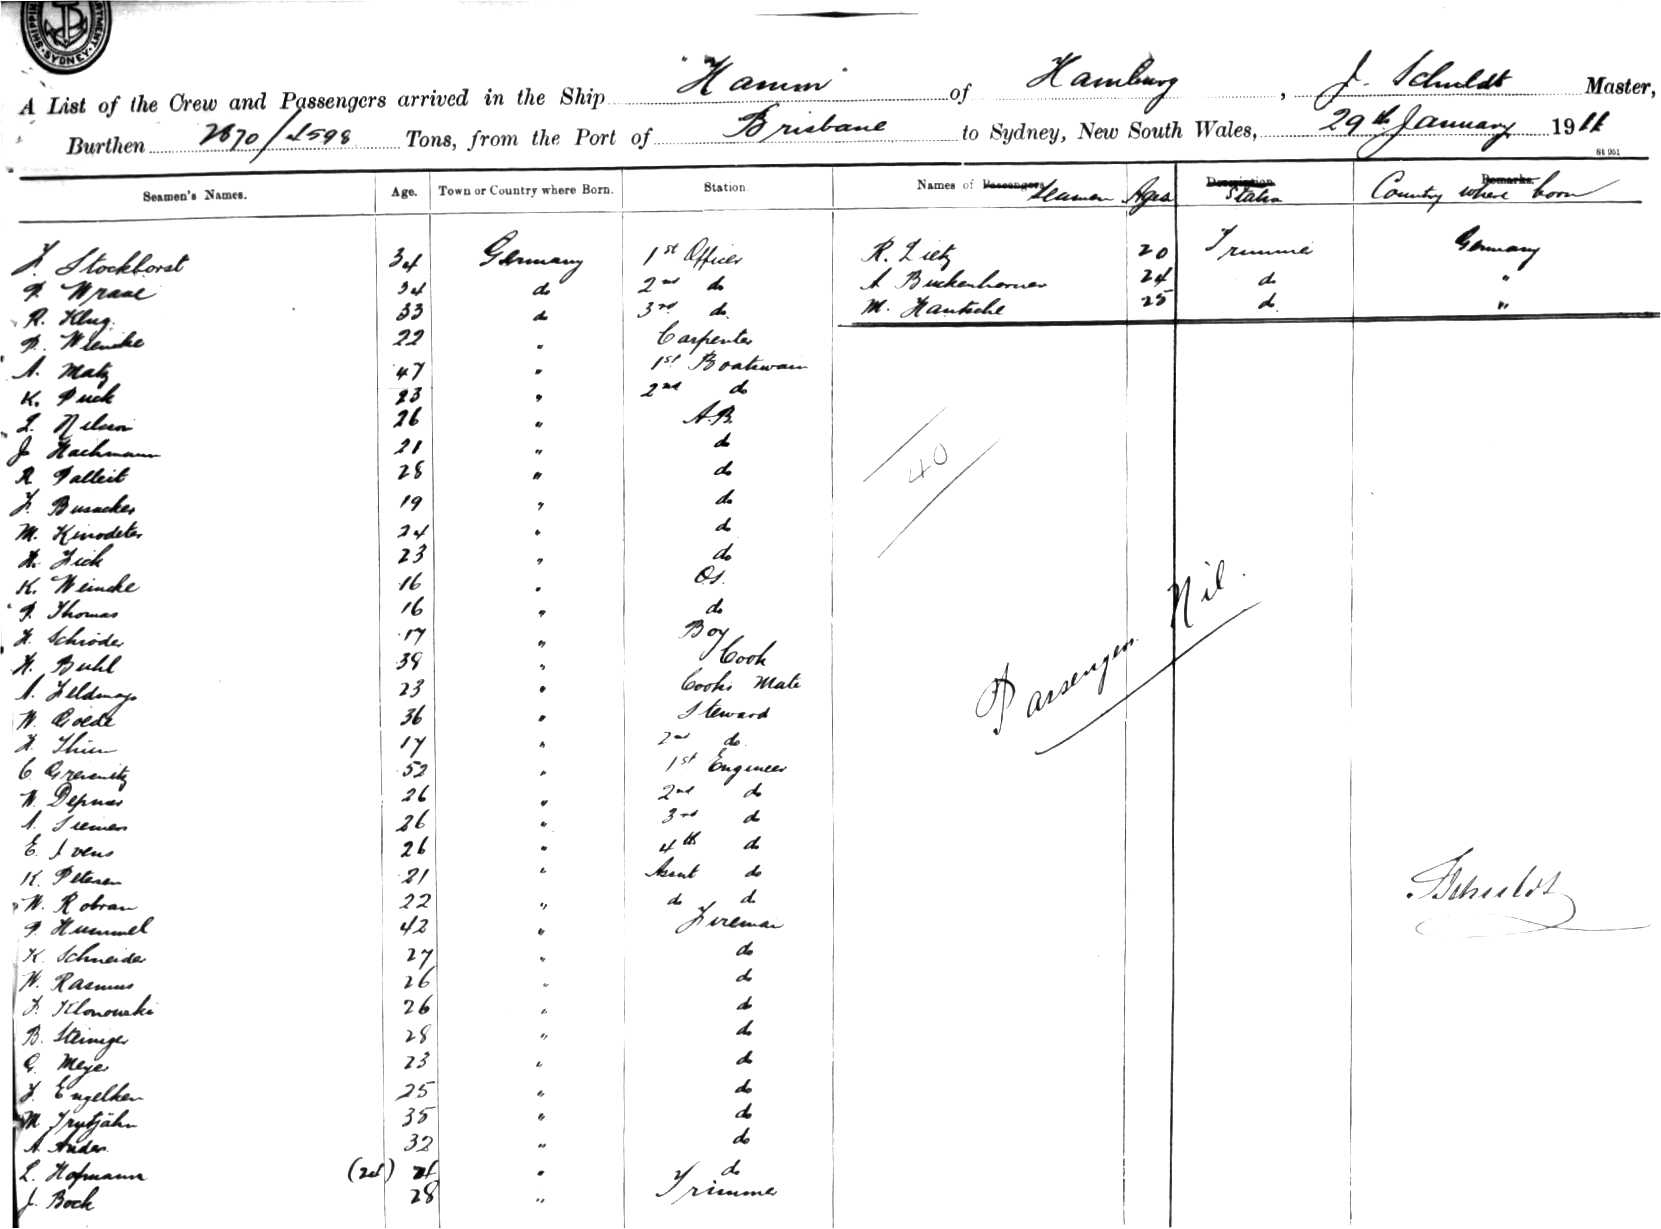 SYDNEY
A List of the Crew and Passengers arrived in the Ship "Hamm" of Hamburg, J. Schuldt Master,
Burthen 2870/4598 Tons, from the Port of Brisbane to Sydney, New South Wales, 29th January 1911
Seamen's Names. Age. Town or Country where Born. Station Names of Passengers Seamen Ages Description Station Remarks. Country where born
F. Stockhorst 34 Germany 1st Officer R. Lietz 20 Trimmer Germany
P. Wraae 34 do 2nd do A 24 do "
R. Klug. 33 do 3rd do M. Hantsche 25 do "
P. Wiencke 22 " Carpenter
A. Matz 47 " 1st Boatswain
K. Puck 23 " 2nd do
L. Nelson 26 " A.B.
J. Hachmann 21 " do
R Palleit 28 " do
F. Busacker 19 " do
M. Kinodeter 24 " do
H. Fick 23 " do
K. Weincke 16 " O.S.
P. Thomas 16 " do
H. Schröder 17 " Boy
H. Buhl 38 " Cook
A. Feldmays 23 " Cooks Mate
W. Goede 36 " Steward
H. Thien 17 " 2nd do
C 52 " 1st Engineer
W. Depner 26 " 2nd do
A. Siemers 26 " 3rd do
E. Ivens 26 " 4th do
K. Petersen 21 " Assnt do
W. Robran 22 " do do
P. Hummel 42 " Fireman
K. Schneider 27 " do
W. Rasmus 26 " do
F. Klonowski 26 " do
B. Steiniger 28 " do
G. Meyer 23 " do
F. Engelken 25 " do
M Trytjahn 35 " do
A. Anders 32 " do
L. Hofmann (24) 24 " do
J. Bock 28 " Trimmer
40
Passengers Nil.
J Schuldt